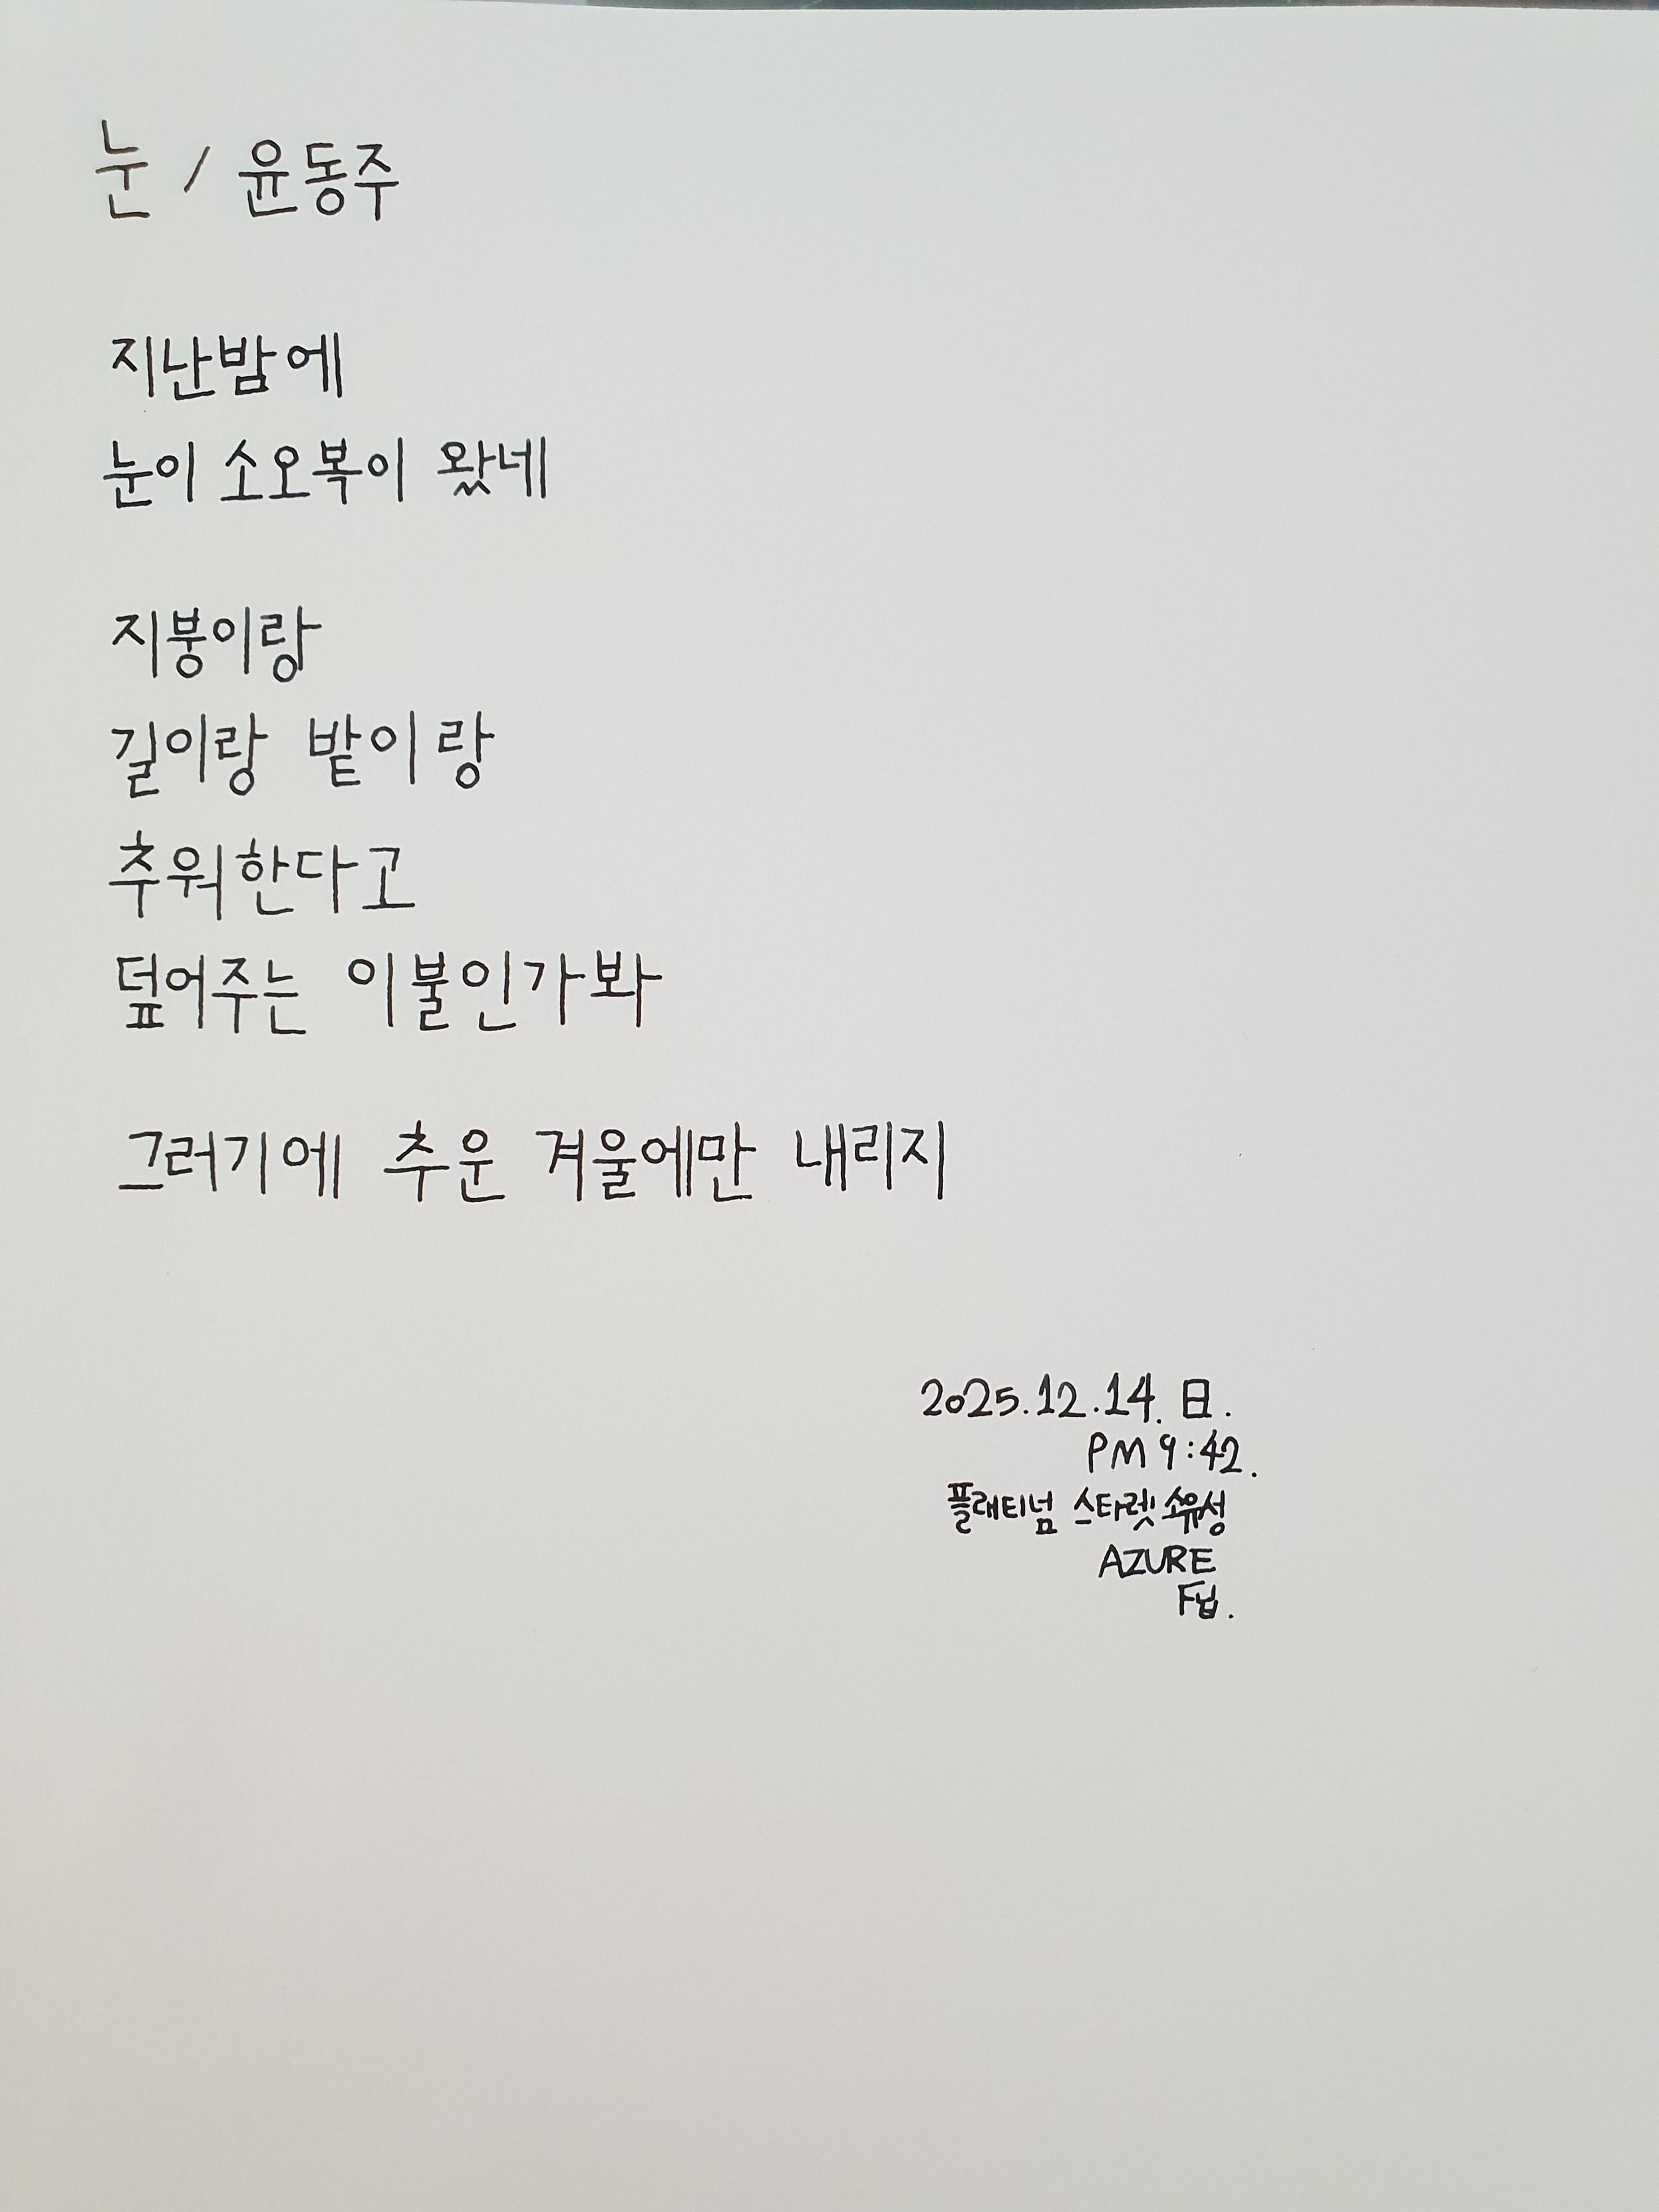 눈 / 윤동주
지난밤에
눈이 소오복이 왔네
지붕이랑
길이랑 밭이랑
추워한다고
덮어주는 이불인가봐
그러기에 추운 겨울에만 내리지
2025.12.14. 日.
PM 9:42.
플래티넘 스타렛 소유성
AZURE
F닙.